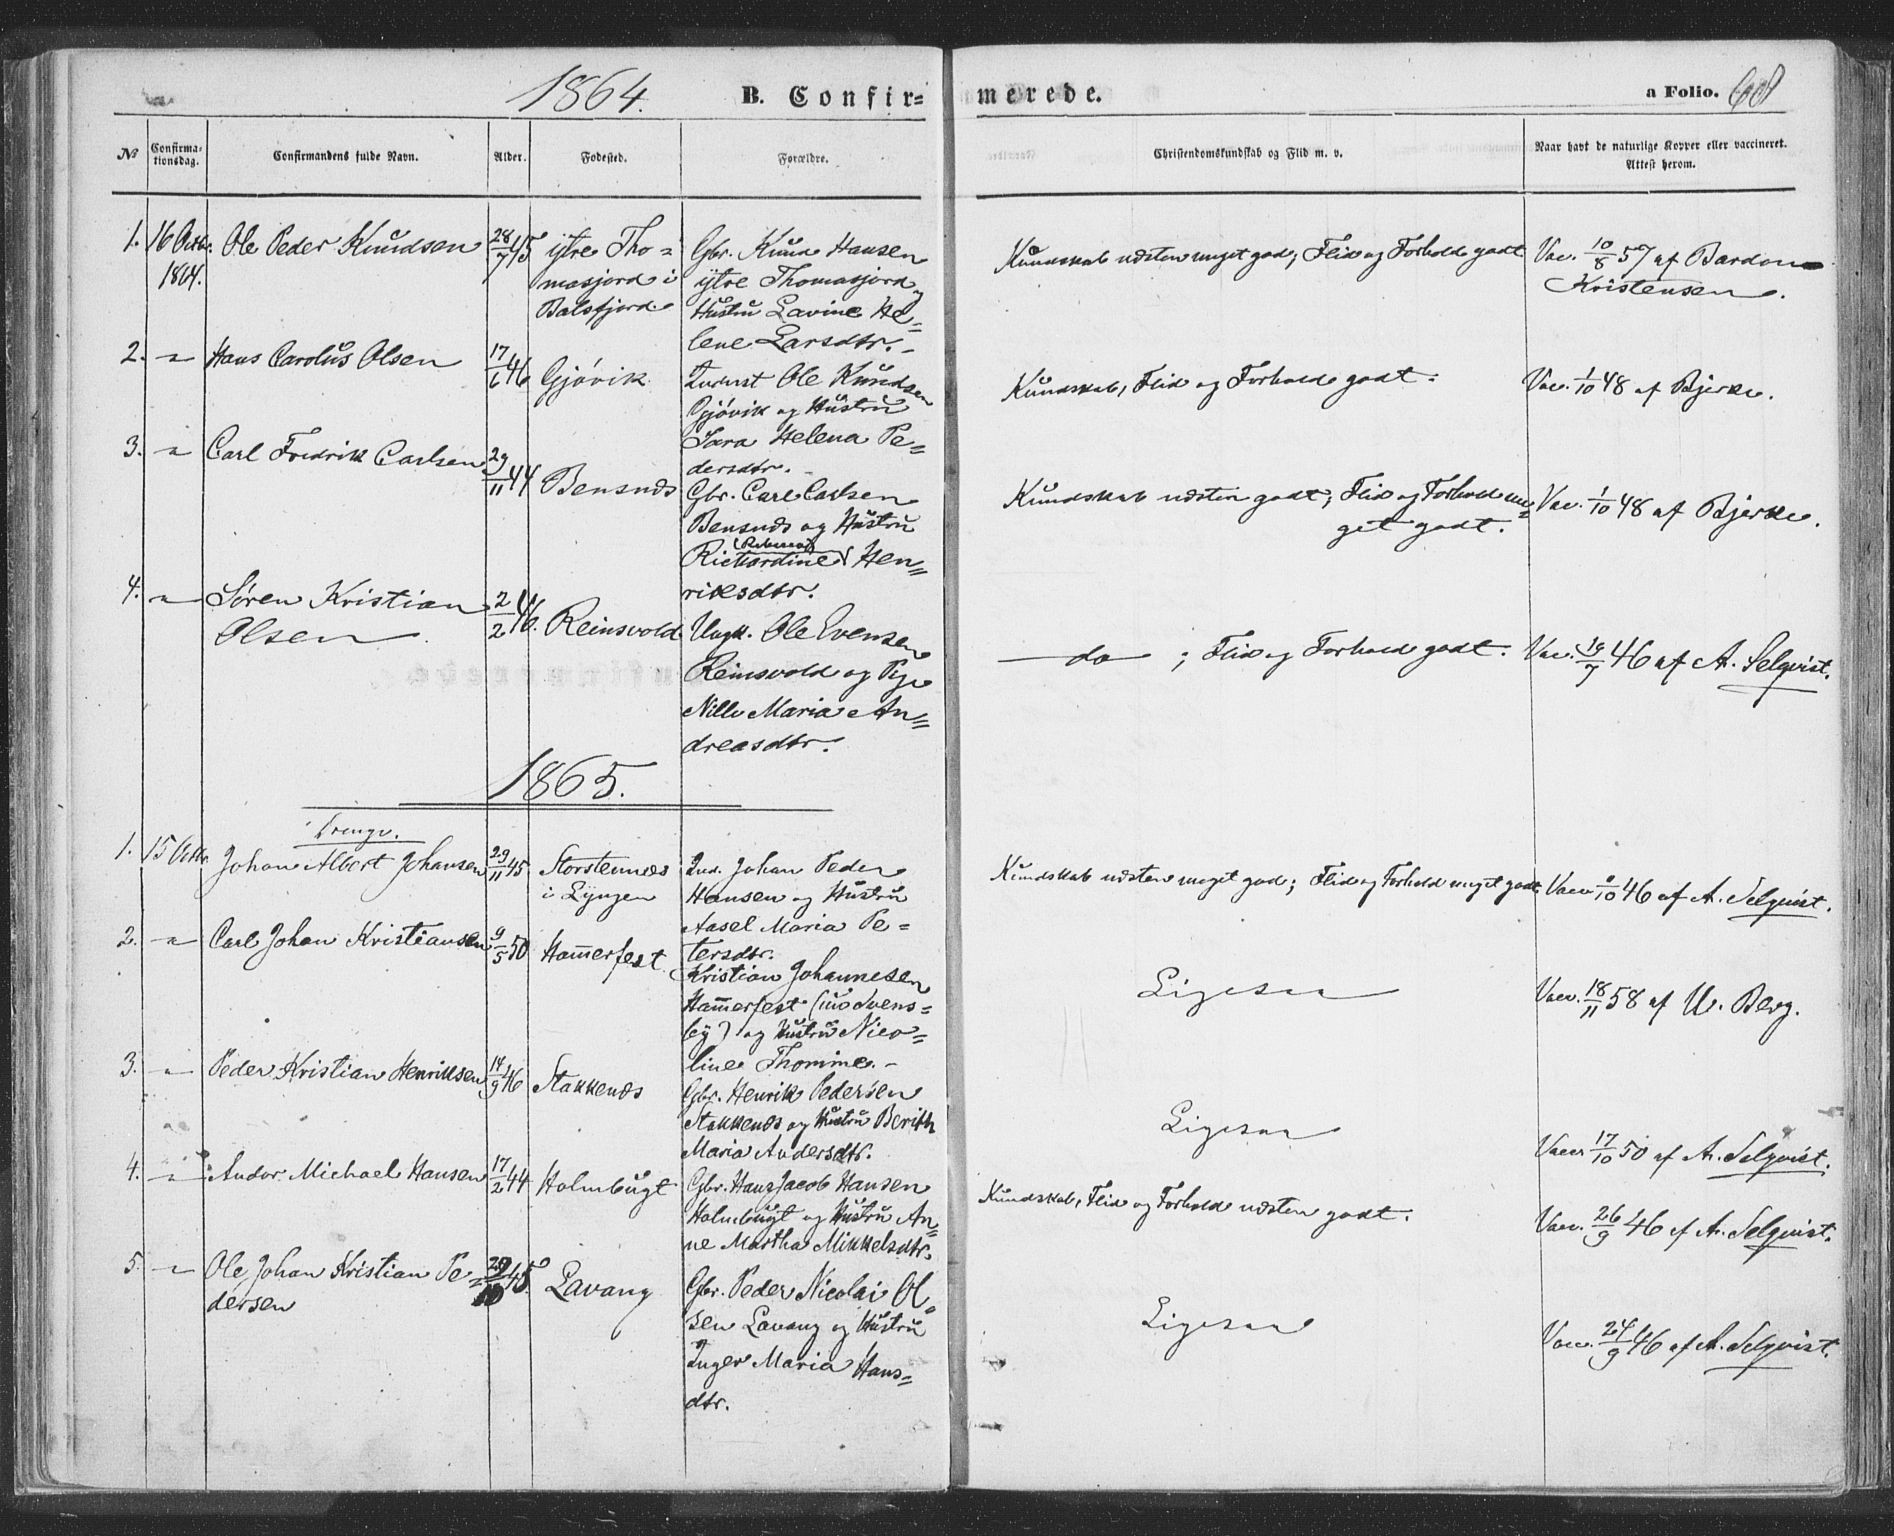 1864. B. Confir= merede. a Folio. 68
№ Confirma-tionsdag. Confirmandens fulde Navn. Alder. Fødested. Forældre. Christendomskundskab og Flid m. v. Naar havt de naturlige Kopper eller vaccineret. Attest herom.
1. 16 Octbr. 1864. Ole Peder Knudsen 28/7 45 ytre Tho=
masjord i
Balsfjord.
Gbr. Knud Hansen
ytre Thomasjord og
Hustru Lavine He=
lene Larsdtr.
Kundskab næsten meget god; Flid og Forhold godt
Vac. 10/8 57 af Bardon
Kristensen.
2. " Hans Carolus Olsen 17/6 46 Gjøvik
Inderst Ole Knudsen
Gjøvik og Hustru
Sara Helena Pe=
dersdtr.
Kundskab, Flid og Forhold godt.
Vac. 1/10 48 af Bjerke.
3. " Carl Fredrik Carlsen 29/11 44 Bensnæs
Gbr. Carl Carlsen
Bensnæs og Hustru
(Rebecca)
Richardine Hen=
riksdtr.
Kundskab næsten godt; Flid og Forhold me=
get godt.
Vac. 1/10 48 af Bjerke.
4. " Søren Kristian
Olsen
2/2 46. Reinsvold
Ungk. Ole Evensen
Reinsvold og Pige
Nille Maria An=
dreasdtr.
do ; Flid og Forhold godt.
Vac. 19/7 46 af A. Selqvist.
1865.
1. 15 Octbr. Johan Albert Johansen 29/11 45 Storstennæs
i Lyngen
Ind. Johan Peder
Hansen og Hustru
Aasel Maria Pe=
tersdtr.
Kundskab næsten meget god; Flid og Forhold meget godt
Vacc. /10 46 af A. Selqvist.
2. " Carl Johan Kristiansen 9/5 50 Hammerfest
Kristian Johannesen
Hammerfest (nu Svens=
by) og Hustru Nico=
line Thomine.
Ligesaa
Vacc. 18/11 58 af U. Berg.
3. " Peder Kristian Henriksen 14/9 46 Stakkenæs
Gbr. Henrik Pedersen
Stakkenæs og Hustru Berith
Maria Andersdtr.
Ligesaa
Vacc 17/10 50 af A. Selqvist.
4. " Andor Michael Hansen 17/2 44 Holmbugt
Gbr. Hans Jacob Hansen
Holmbugt og Hustru An=
ne Martha Mikkelsdtr.
Kundskab, Flid og Forhold næsten godt.
Vacc. 26/9 46 af A. Selqvist.
5. " Ole Johan Kristian Pe=
dersen
29/10 45 Lavang
Gbr. Peder Nicolai Ol=
sen Lavang og Hustru
Inger Maria Hans=
dtr.
Ligesaa
Vacc. 24/9 46 af A. Selqvist.